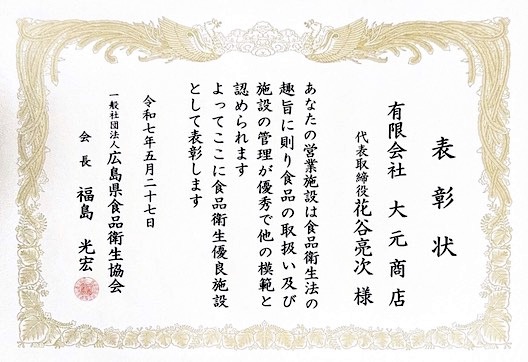 表彰状
有限会社 大元商店
代表取締役 花谷亮次 様
あなたの営業施設は食品衛生法の
趣旨に則り食品の取扱い及び
施設の管理が優秀で他の模範と
認められます
よってここに食品衛生優良施設
として表彰します
令和七年五月二十七日
一般社団法人 広島県食品衛生協会
会長 福島 光宏